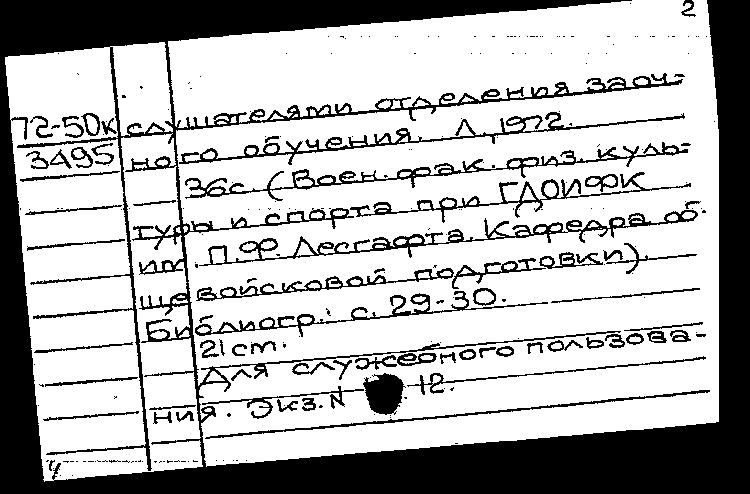 2
72-50к слушателями отделения заоч-
3495 ного обучения. Л., 1972.
36с. (Воен. фак. физ. куль-
туры и спорта при ГДОИФК
им. П.Ф. Лесгафта. Кафедра об-
щевойсковой подготовки).
Библиогр.: с. 29-30.
21 cm.
Для служебного пользова-
ния. Экз. N 12.
4